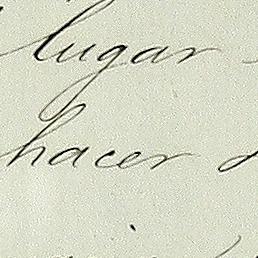 lugar
hacer